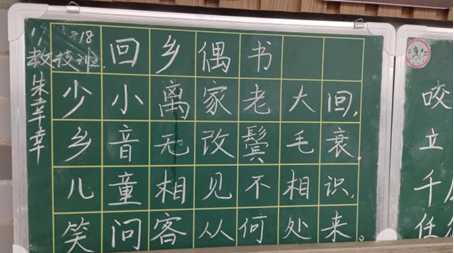 回乡偶书
少小离家老大回,
乡音无改鬓毛衰,
儿童相见不相识,
笑问客从何处来。
朱幸幸
咬
立
千
任